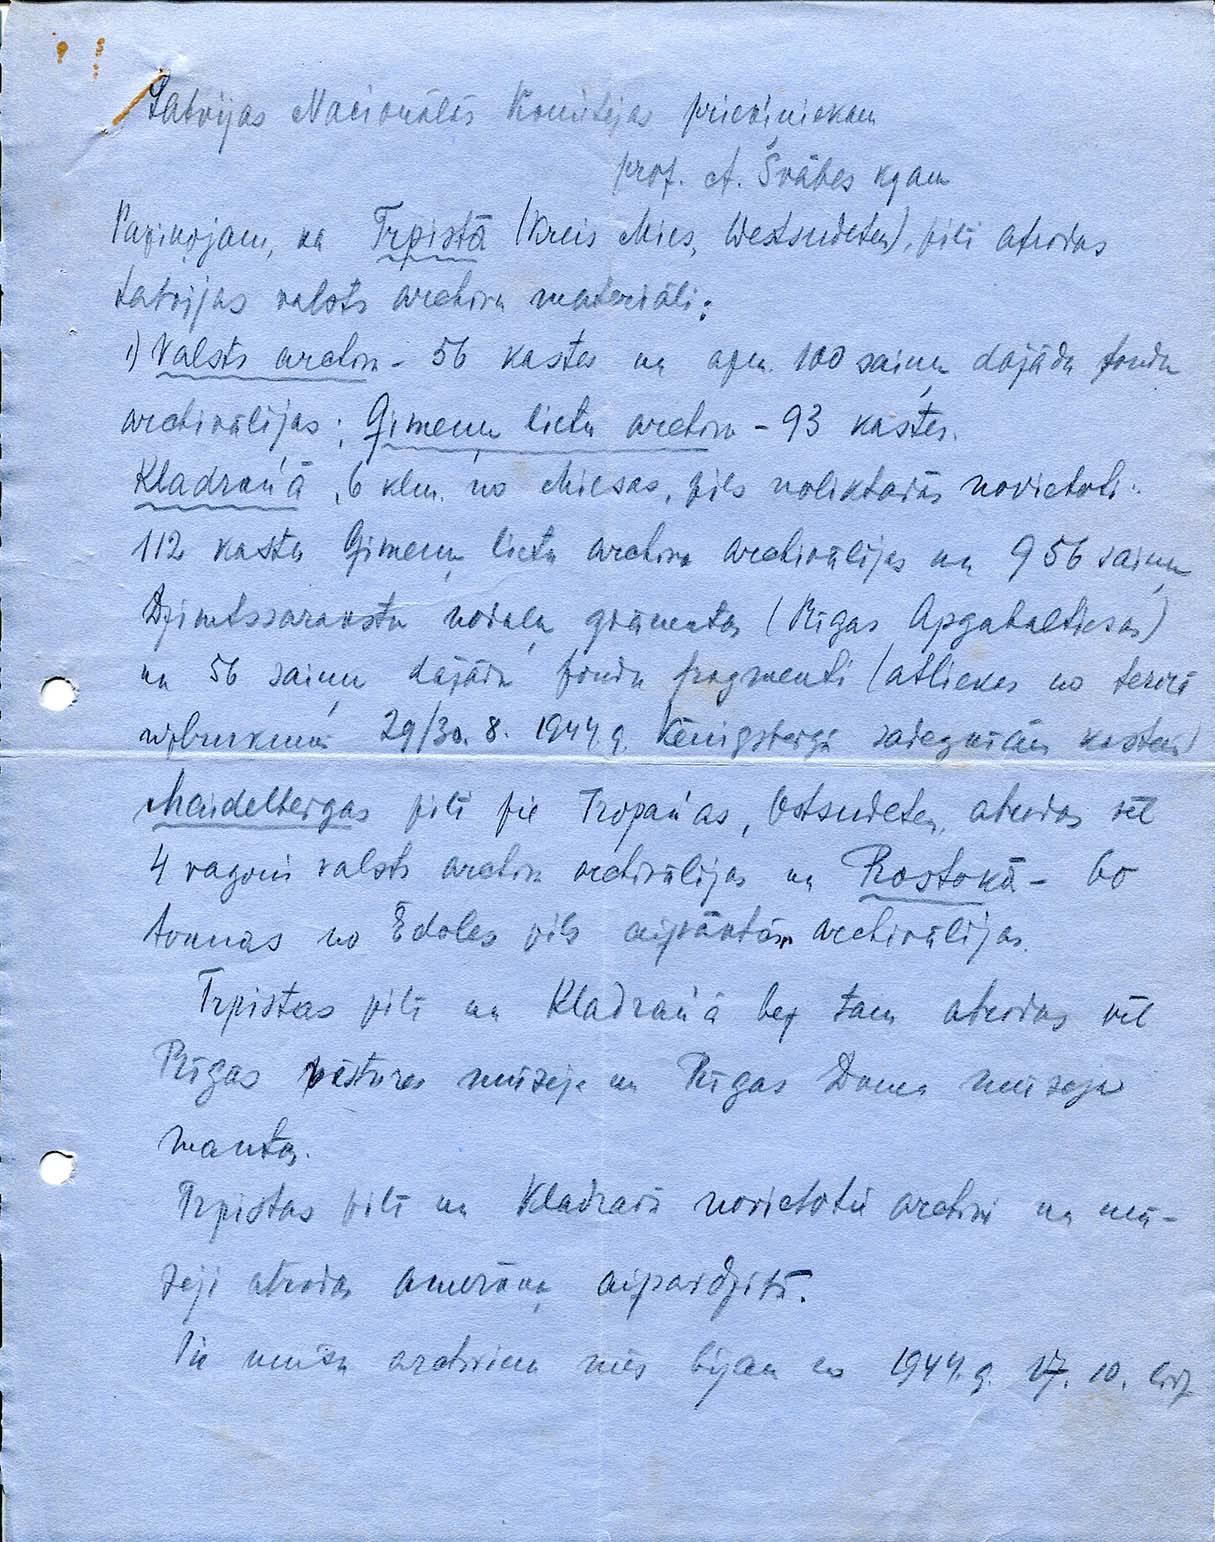 Latvijas Nacionālās Komitejas priekšniekam
prof. A. Švābes kgam
Paziņojam, ka Trpistā (Kreis Mies, Westsudeten), pilī atrodas
Latvijas valsts archīva materiāli:
1) Valsts archīva - 56 kastes un apm. 100 saiņu dažādu fondu
archivālijas; Ģimeņu lietu archīva - 93 kastes.
Kladrau'ā, 6 klm. no Miesas, pils noliktavās novietoti:
112 kastu Ģimeņu lietu archīva archivālijas un 956 saiņu
Dzimtssarakstu nodaļu grāmatas (Rīgas Apgabaltiesas)
un 56 saiņu dažādu fondu fragmenti (atliekas no terora
uzbrukumā 29/30. 8. 1944. g. Kēnigsbergā sadegušām kastēm)
Maidelbergas pilī pie Tropau'as, Ostsudeten, atrodas vēl
4 vagoni valsts archīva archivālijas un Rostokā - 60
tonnas no Ēdoles pils aizvāktās archivālijas.
Trpistas pilī un Kladrau'ā bez tam atrodas vēl
Rīgas vēstures mūzeja un Rīgas Doma mūzeja
mantas.
Trpistas pilī un Kladravā novietotie archīvi un mū-
zeji atrodas amerikāņu aizsardzībā.
Pie mūsu archīviem mēs bijām no 1944. g. 17. 10. līdz